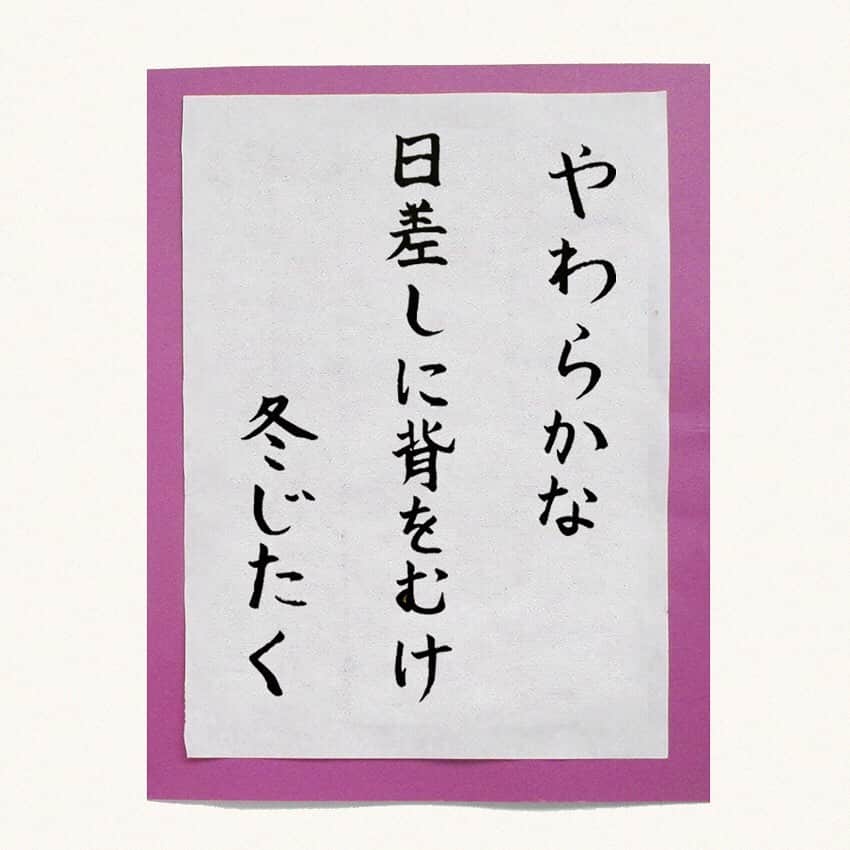 やわらかな
日差しに背をむけ
冬じたく